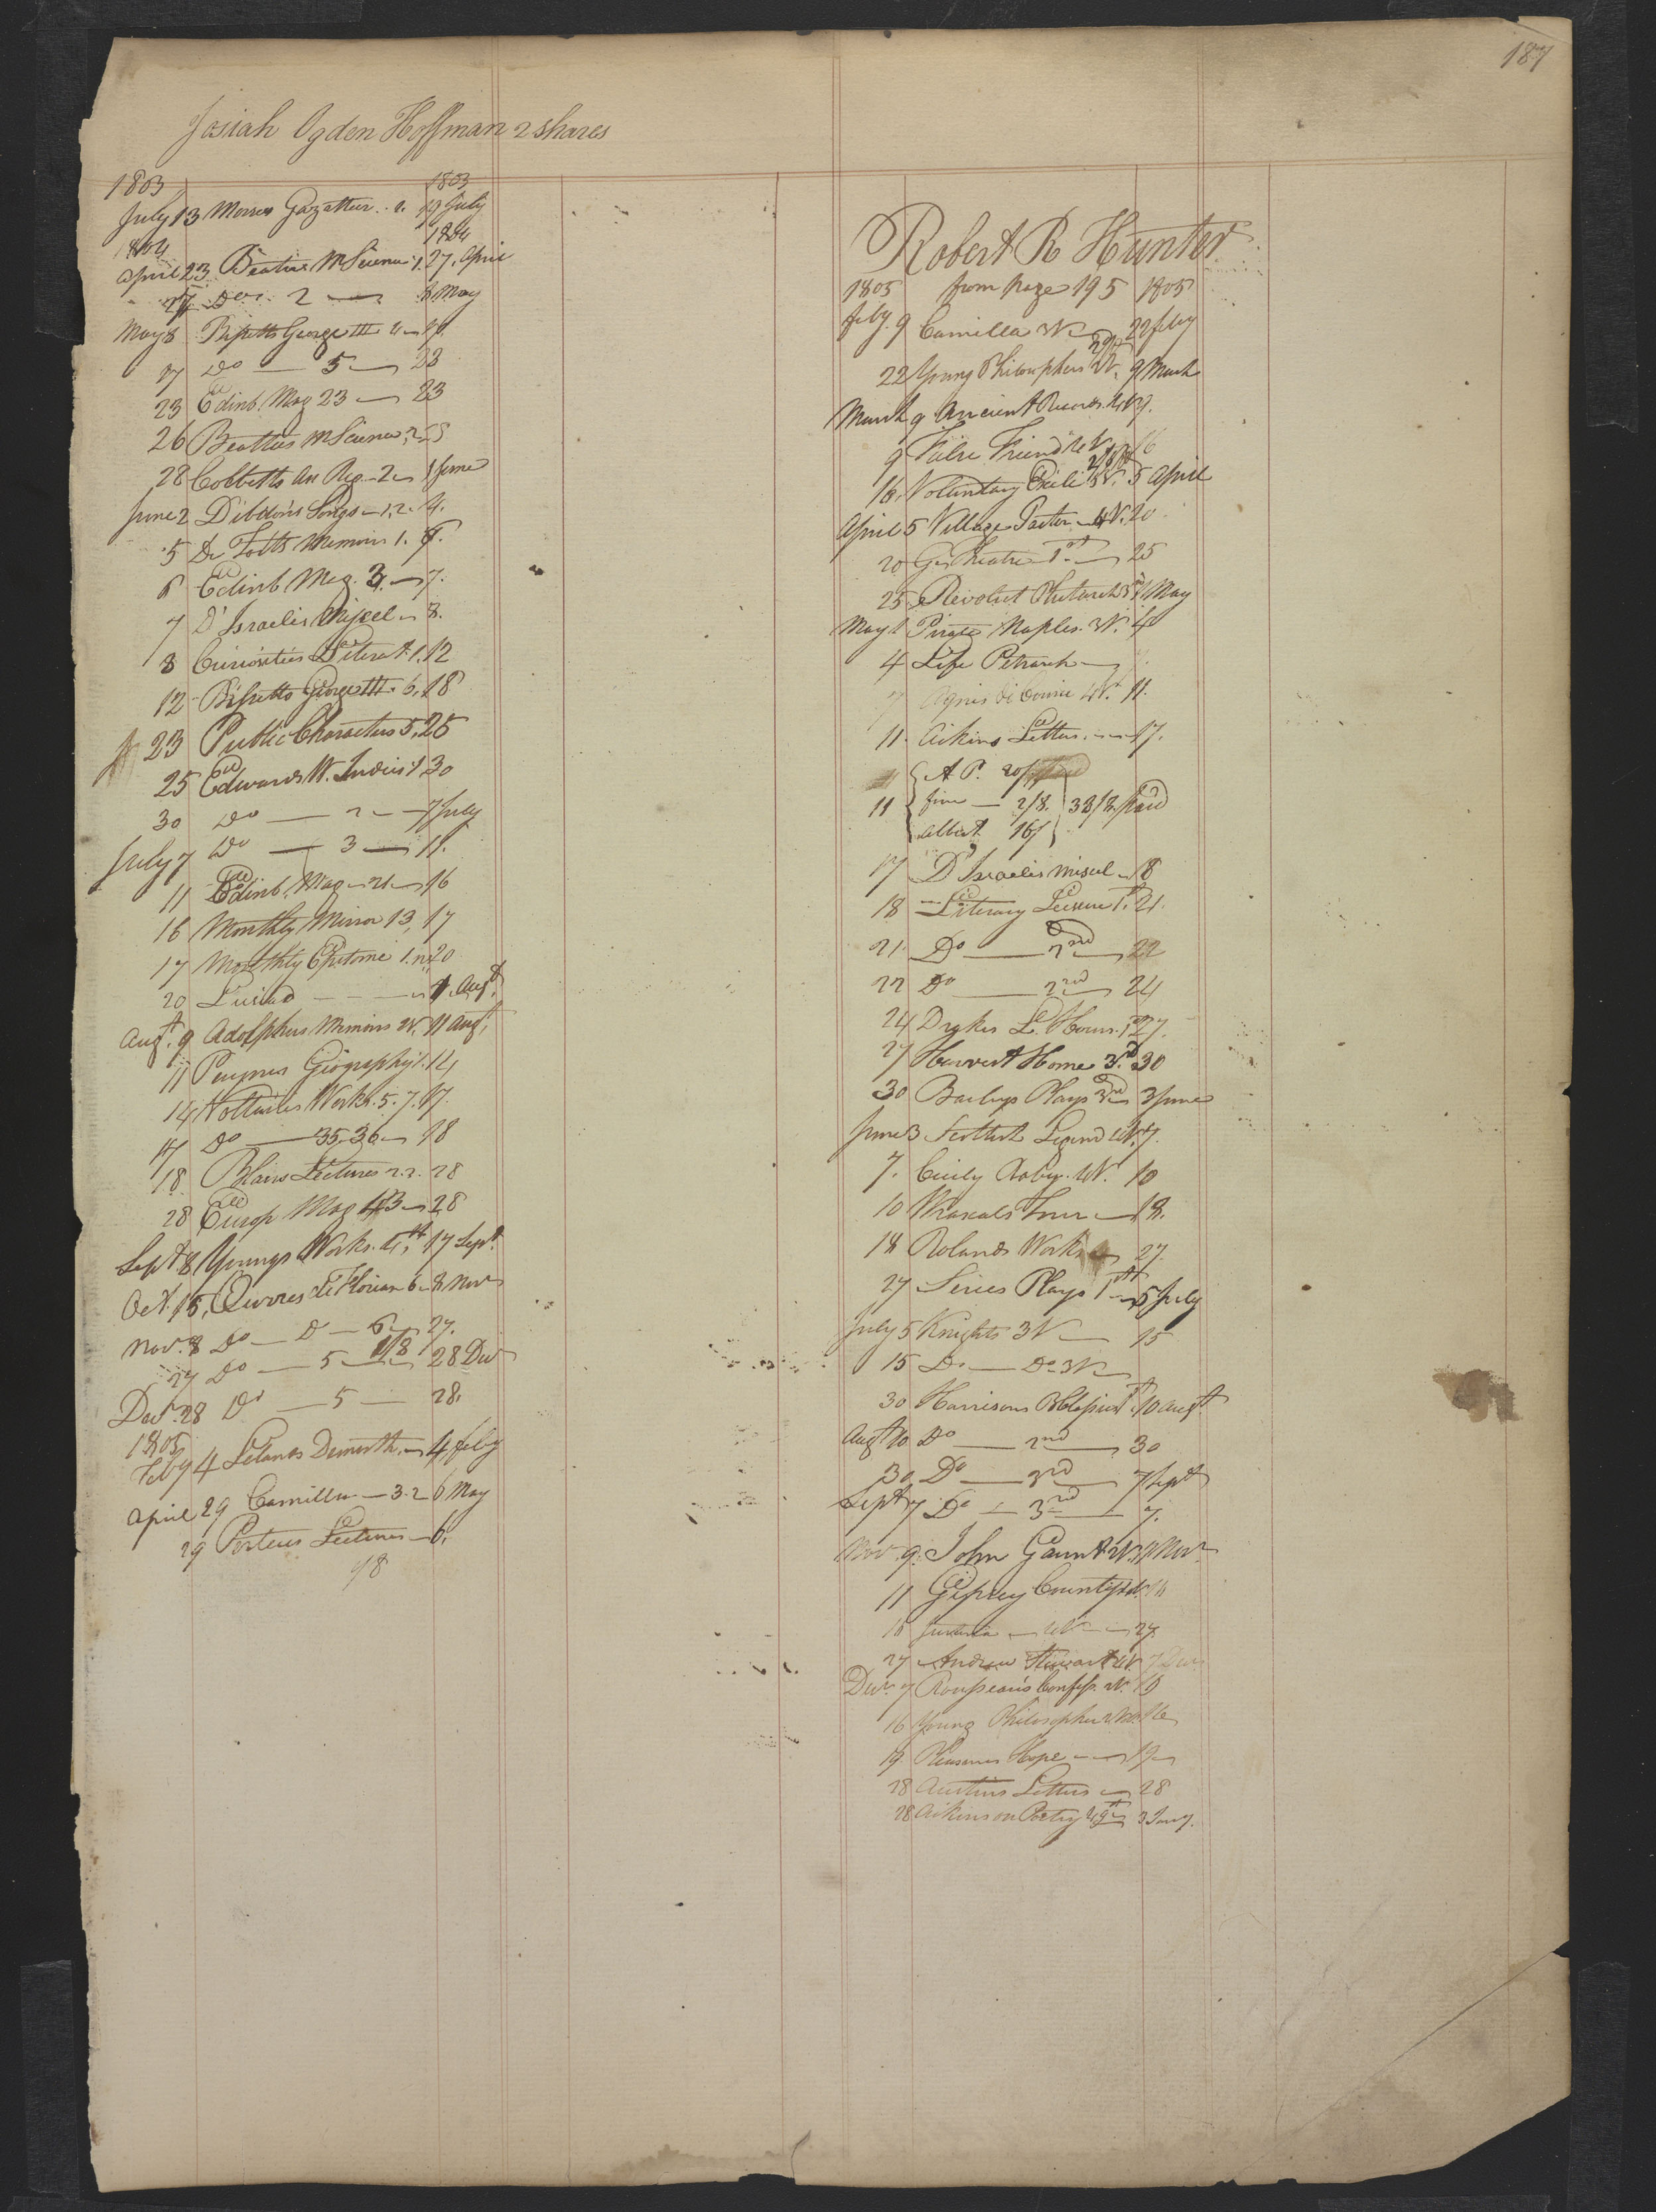 187
Josiah Ogden Hoffman 2 shares
1803 1803
July 13 Morses Gazatteer 19 July
1804 1804
April 23 Beatties M Science 1. 27. April
27 Do 2 8 May
May 8 Bissetts George III 4 17.
17 Do 5 23
23 Edinb. Mag 23 23
26 Beatties M Science 2 28
28 Cobbetts An Reg. 2 1 June
June 2 Dibdins Songs 1. 2. 4.
5 De Totts Memoirs 1. 6.
6 Edinb Mag. 3 7.
7 D'Israelis Miscel 8.
8 Curiosities Literat. 1. 12
12 Bissetts George III. 6. 18
23 Public Characters 5. 25
25 Edwards W. Indies 1 30
30 Do 2 7 July
July 7 Do 3 11.
11 Edinb. Mag 21 16
16 Monthly Mirror 13. 17
17 Monthly Epitome 1. 20
20 Lusiad Augt.
Augt. 9 Adolphus Memoirs 2V. 11 Augt.
11 Paynes Geography 1. 14
14 Voltaires Works. 5. 7. 17.
17 Do 35. 36 18
18 Blairs Lectures 2. 2. 28
28 Europ Mag 43 28
Sept. 8. Youngs Works. 4th 17 Sept.
Oct. 15. Œuvres de Florian 6 8 Novr
Novr. 8 Do D 6 27.
27 Do 5 1/8 28 Decr
Decr. 28 Do 5 28.
1805
Feby 4 Lelands Demosth. 4 feby
April 29 Camilla 3. 2 6 May
29 Porteus Lectures 6.
98
Robert R Hunter
1805 from page 195 1805
feby. 9 Camilla 3V 22 feby
22 Young Philosophers 2V. 9 March
March 9 Ancient Records. 4V 9.
9 False Friend 2V 16
16. Voluntary Exile 5V. 5 April
April 5 Village Pastor 4V. 20
20 Ger Theatre 1st 25
25 Revolut Plutarch 3d 1 May
May 1 Pirate Naples. 3V. 4
4 Life Petrarch 7
7 Agnes de Courcie 4V. 11.
11. Aikins Letters. 17.
A P. 20/
11 fine 2/8. 38/8. paid
Albert 16/
17 D'Israelis miscel 18
18 Literary Leisure 1st. 21.
21. Do 2nd 22
22 Do 2nd 24
24 Drakes L. Hours. 1st 27.
27 Harvest Home 3d. 30
30 Baileys Plays 3rd 3 June
June 3 Scottish Legend 4V. 7.
7. Cicily Raby. 4V. 10
10 Wraxals Tour 18.
18 Rolands Works 27.
27 Series Plays 1st 5 July
July 5 Knights 3V 15
15 Do Do 3V
30 Harrisons 1st 10 Augt
Augt 10 Do 2nd 30
30 Do 3rd 7 Sept
Sept 7 Do 3rd 7.
Novr 9. John Gaunt 2V. 11 Novr
11 Gipsey Countess 4V. 18
18 Juvenilia 2V 27.
27 Andrew Stuart 4V. 7 Decr
Decr. 7 Rousseau's Confess. 2V. 16
16 Young Philosopher 2 Vo. 16
19 Pleasures Hope 19
28 Austins Letters 28
28 Aikins on Poetry 3 Jany.